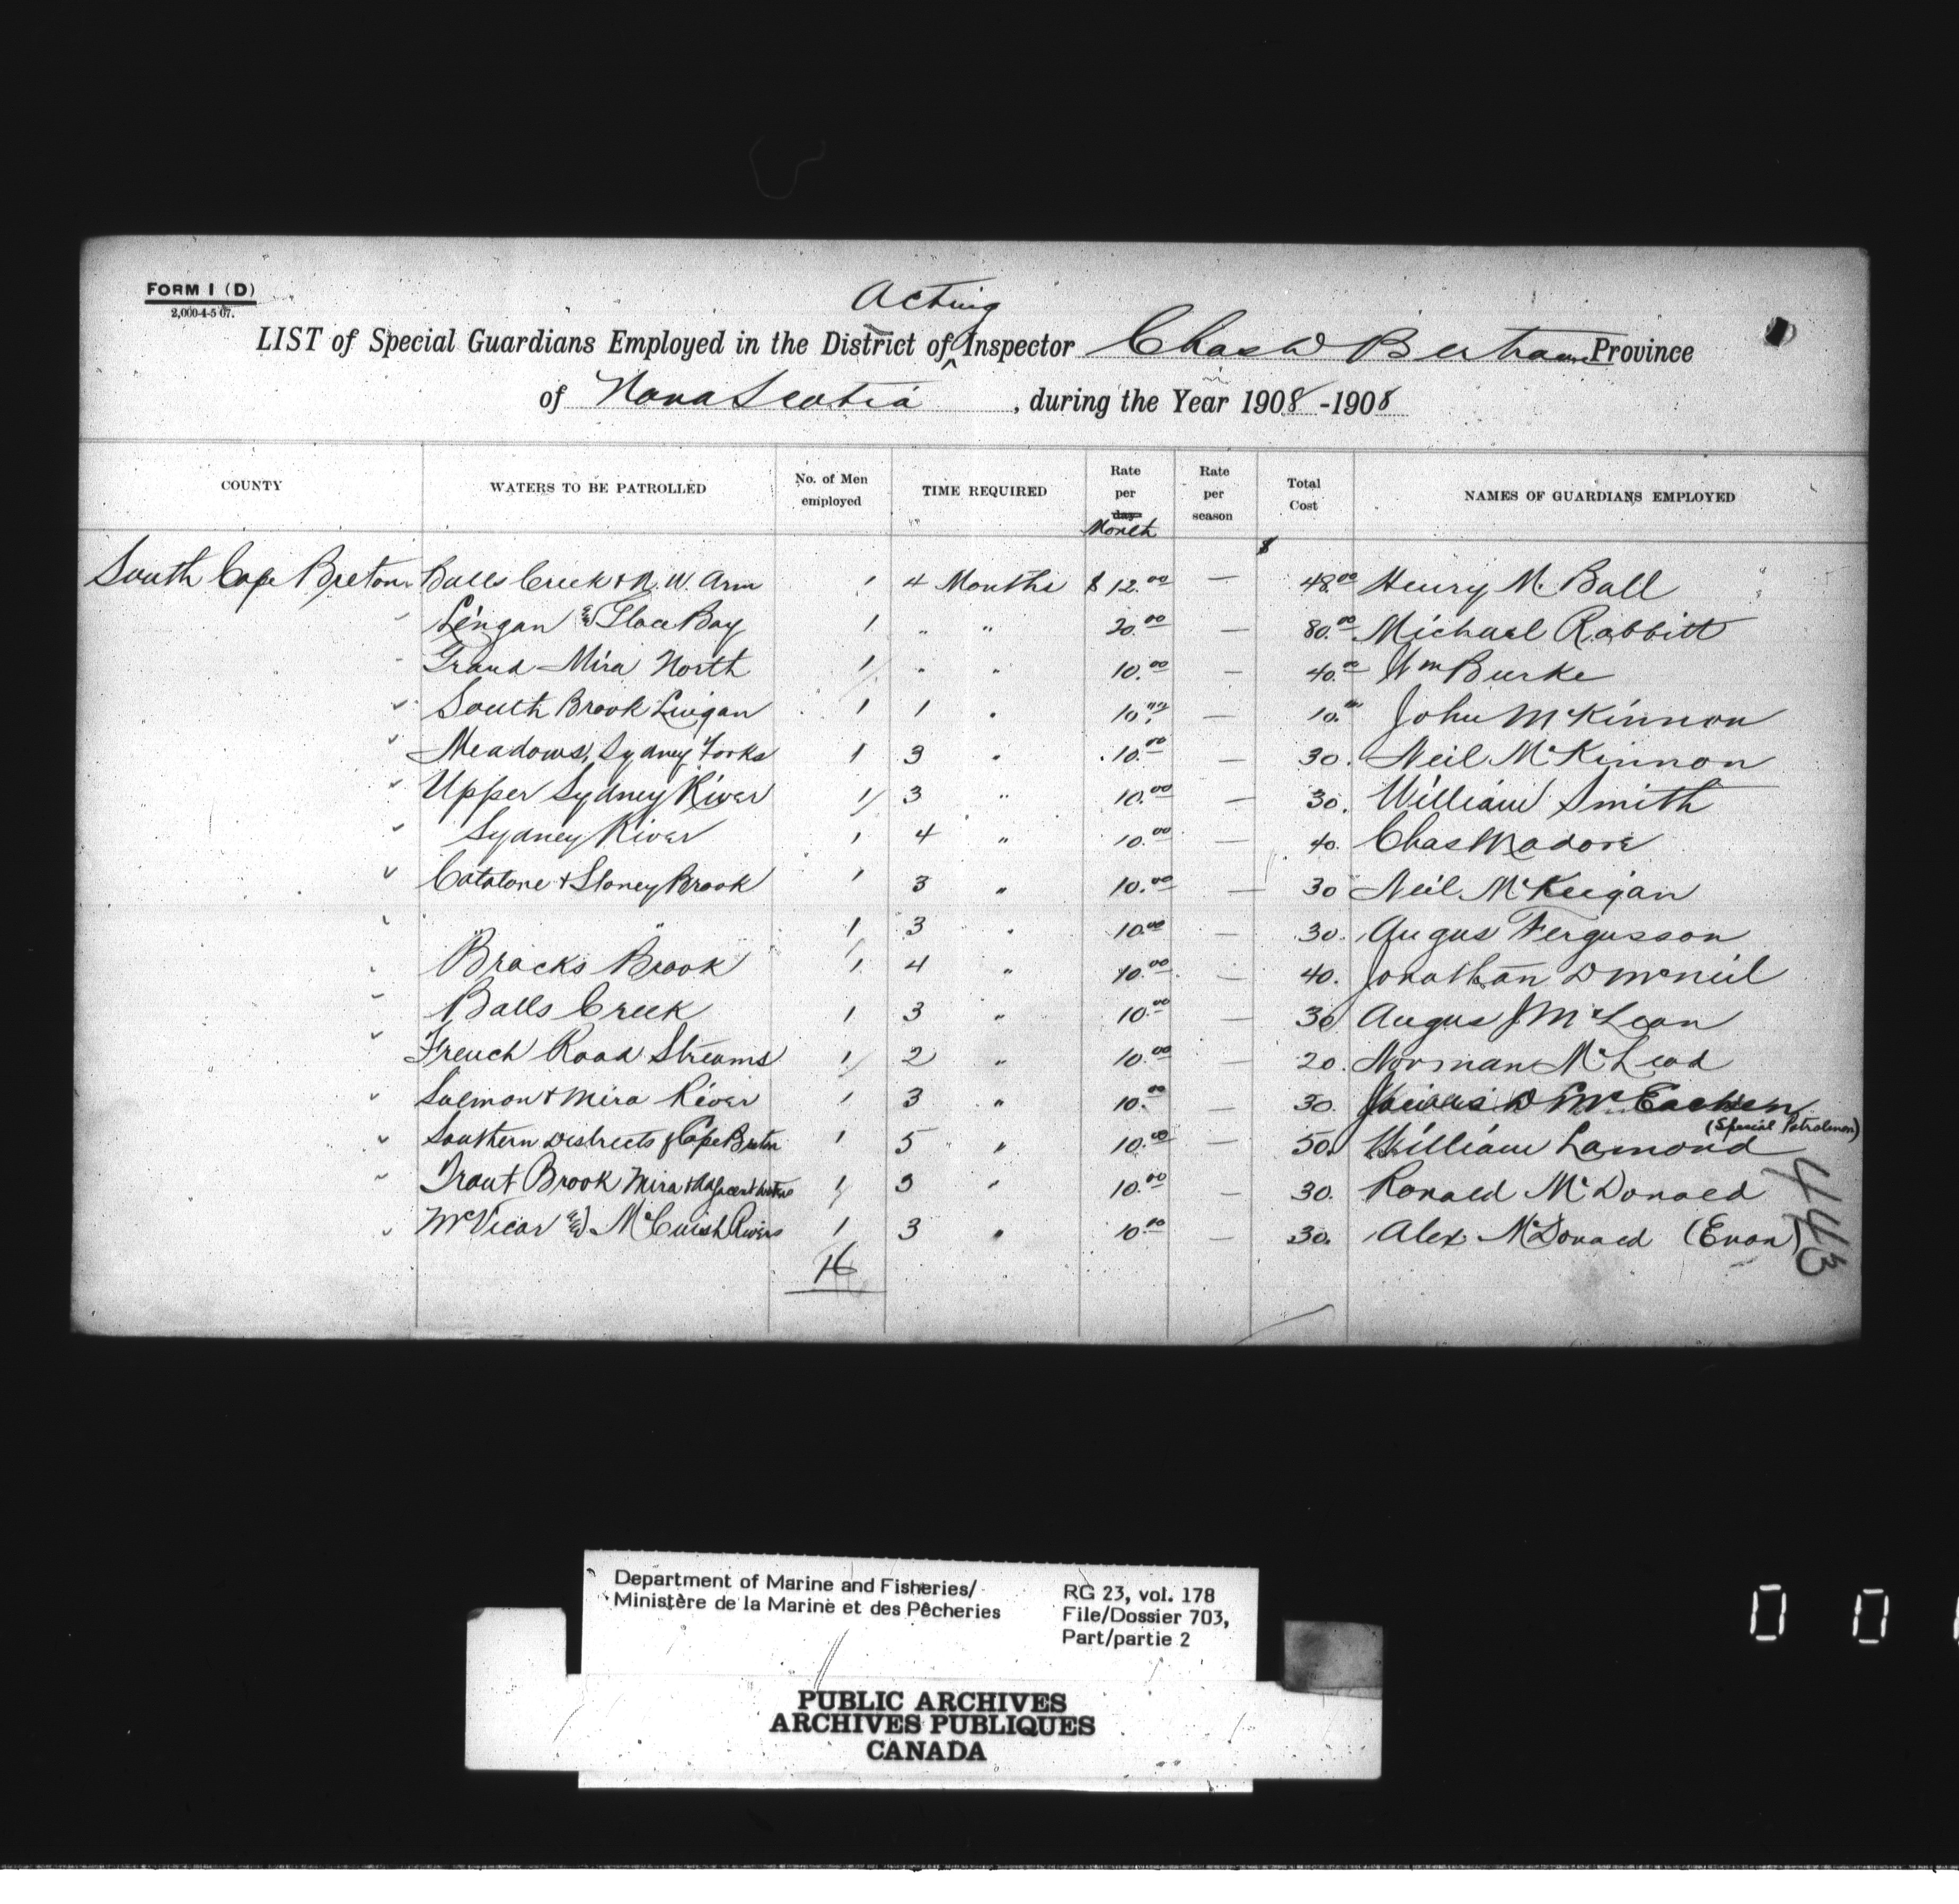 FORM 1 (D)
2,000-4-5 07.
Acting
LIST of Special Guardians Employed in the District of ^ Inspector Chas W Bertram Province
of Nova Scotia , during the Year 1908 -1908
COUNTY WATERS TO BE PATROLLED No. of Men employed TIME REQUIRED Rate per day Month Rate per season Total Cost NAMES OF GUARDIANS EMPLOYED
$
South Cape Breton Balls Creek & N. W. Arm 1 4 Months $ 12.00 — 48.00 Henry M. Ball
" Lingan and Glace Bay 1 " " 20.00 — 80.00 Michael Rabbitt
" Grand Mira North 1 " " 10.00 — 40.00 Wm Burke
" South Brook Lingan 1 1 " 10.00 — 10.00 John McKinnon
" Meadows, Sydney Forks 1 3 " 10.00 — 30. Neil McKinnon
" Upper Sydney River 1 3 " 10.00 — 30. William Smith
" Sydney River 1 4 " 10.00 — 40. Chas Madore
" Catalone & Stoney Brook 1 3 " 10.00 — 30 Neil McKeigan
" " " 1 3 " 10.00 — 30. Angus Fergusson
" Bracks Brook 1 4 " 10.00 — 40. Jonathan D McNeil
" Balls Creek 1 3 " 10.00 — 30 Angus J McLean
" French Road Streams 1 2 " 10.00 — 20. Norman McLeod
" Salmon & Mira River 1 3 " 10.00 — 30. D McEachen
" Southern Districts of Cape Breton 1 5 " 10.00 — 50. William Lamond (Special Patrolman)
" Trout Brook Mira & Adjacent waters 1 3 " 10.00 — 30. Ronald McDonald
" McVicar and McCuish Rivers 1 3 " 10.00 — 30. Alex McDonald (Evan)
16
443
Department of Marine and Fisheries/
Ministère de la Marine et des Pêcheries
RG 23, vol. 178
File/Dossier 703,
Part/partie 2
PUBLIC ARCHIVES
ARCHIVES PUBLIQUES
CANADA
0 0